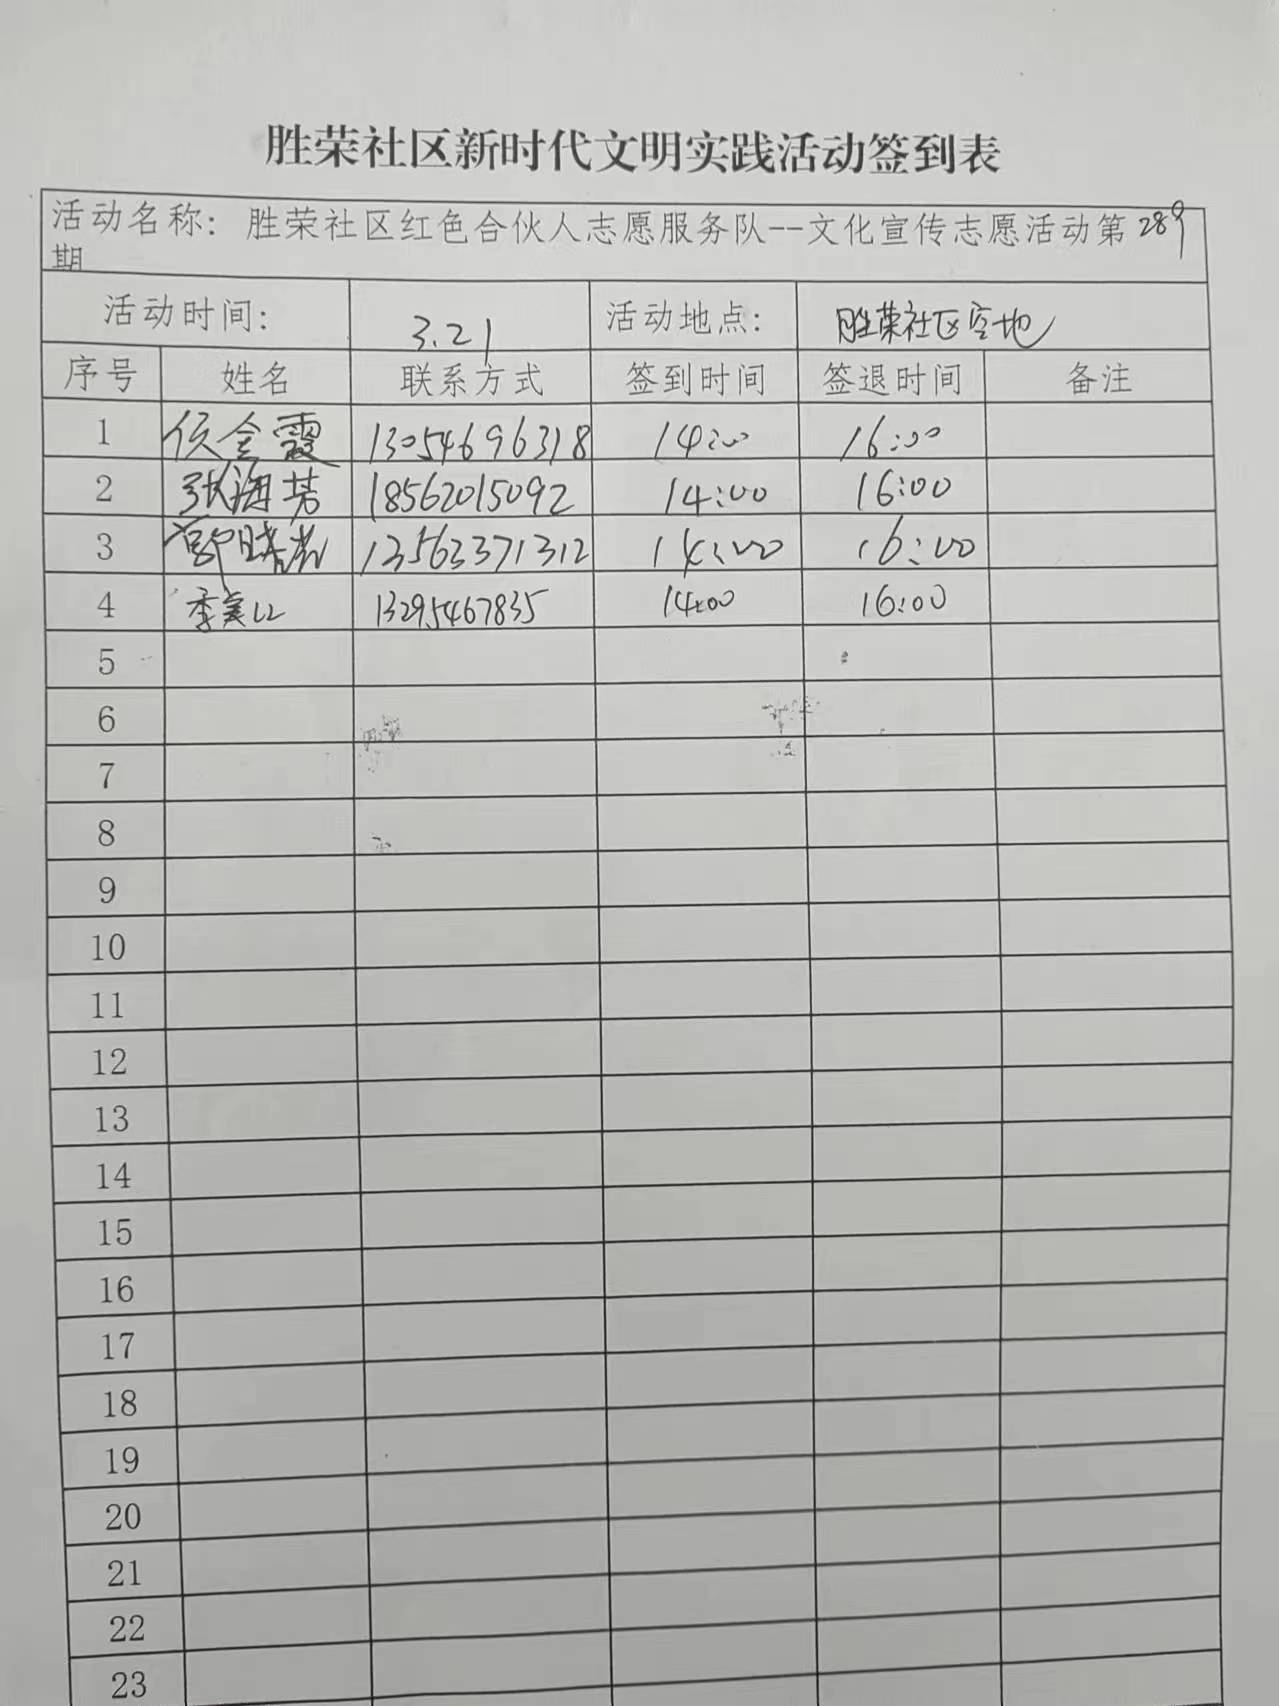 胜荣社区新时代文明实践活动签到表
活动名称：胜荣社区红色合伙人志愿服务队--文化宣传志愿活动第289
期
活动时间： 3.21 活动地点： 胜荣社区空地
序号 姓名 联系方式 签到时间 签退时间 备注
1 侯金霞 13054696318 14:00 16:00
2 张海芳 18562015092 14:00 16:00
3 13563371312 14:00 16:00
4 季美江 13295467835 14:00 16:00
5
6
7
8
9
10
11
12
13
14
15
16
17
18
19
20
21
22
23